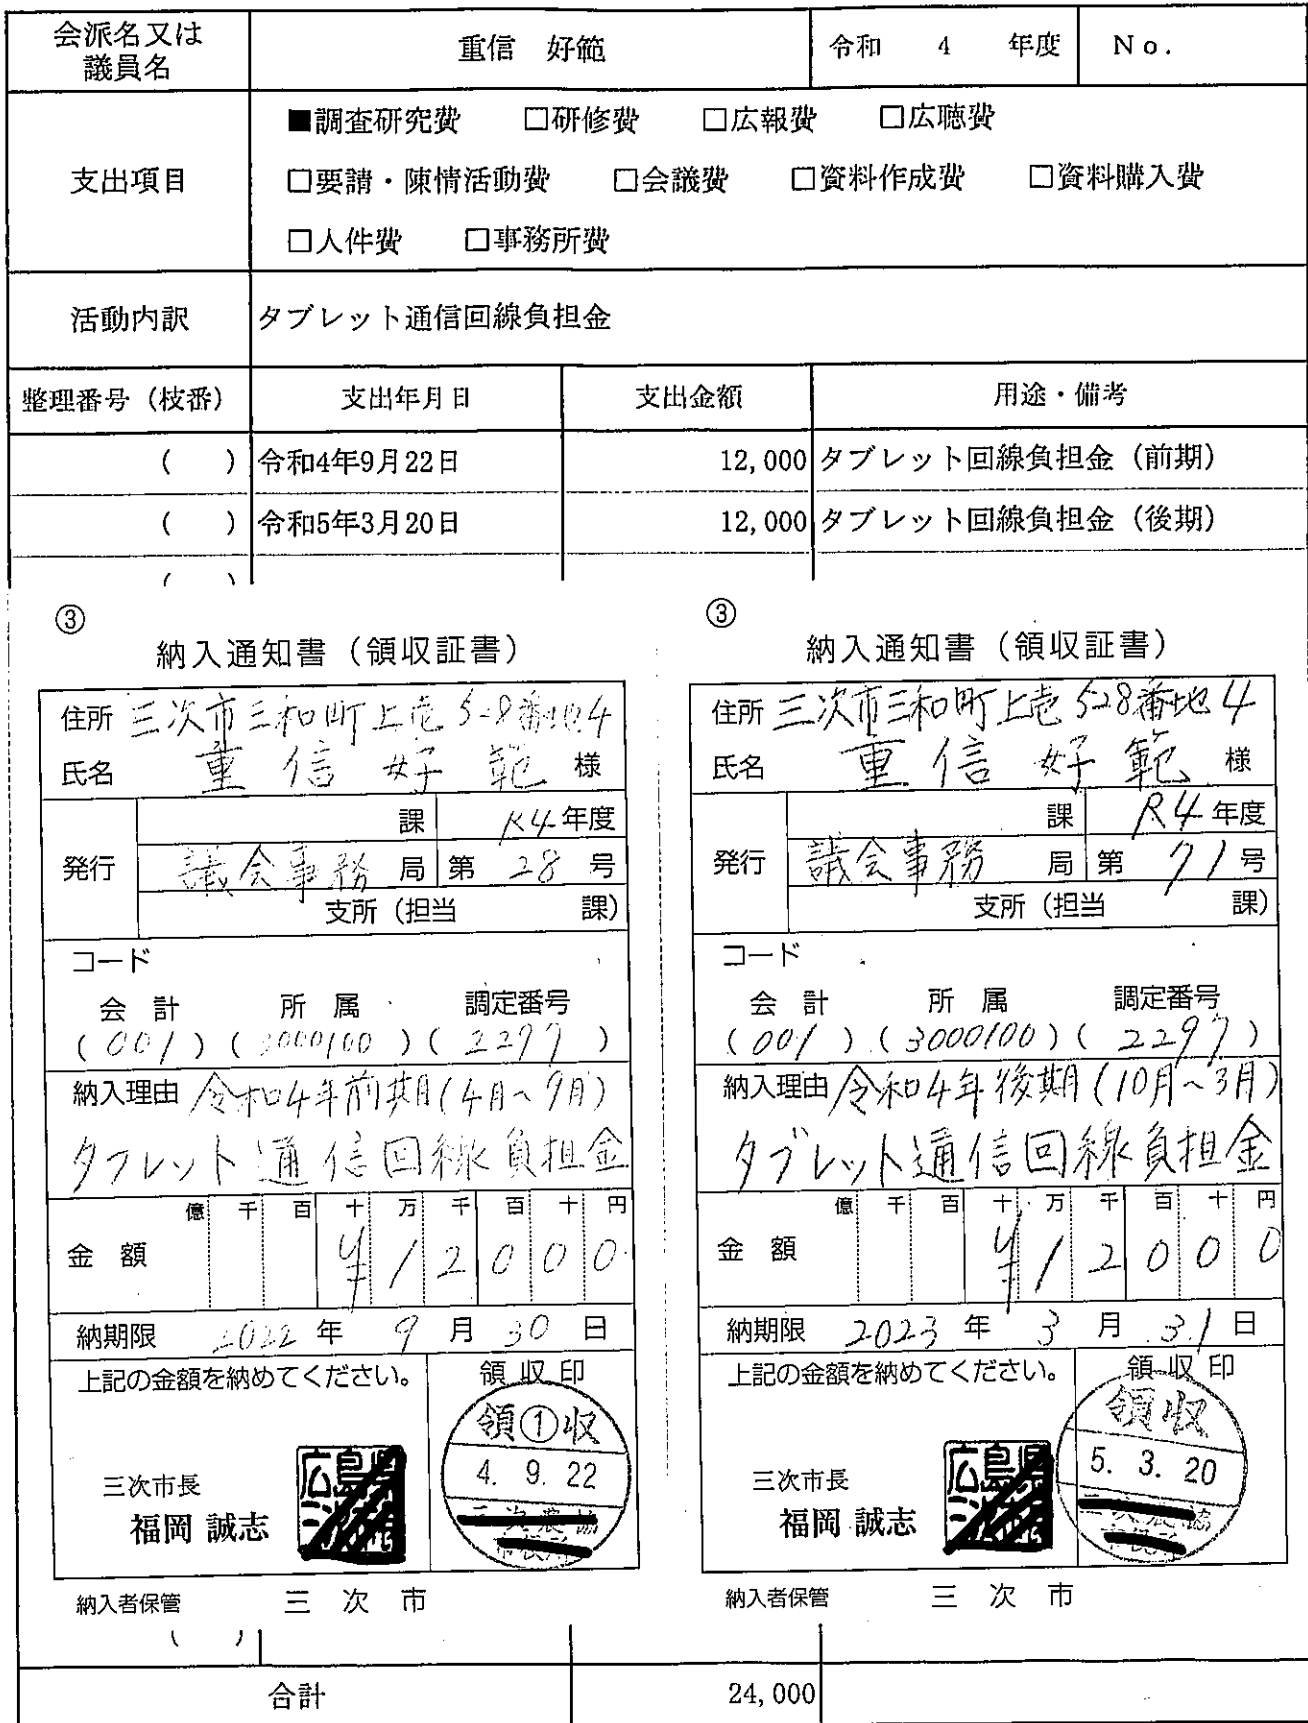 会派名又は
議員名
重信 好範
令和 4 年度
No.
支出項目
■調査研究費 □研修費 □広報費 □広聴費
□要請・陳情活動費 □会議費 □資料作成費 □資料購入費
□人件費 □事務所費
活動内訳
タブレット通信回線負担金
整理番号（枝番） 支出年月日 支出金額 用途・備考
( ) 令和4年9月22日 12,000 タブレット回線負担金（前期）
( ) 令和5年3月20日 12,000 タブレット回線負担金（後期）
( )
③
納入通知書（領収証書）
住所 三次市三和町上壱528番地4
氏名 重信好範 様
発行
課 R4年度
議会事務局 第28号
支所（担当 課）
コード
会計 所属 調定番号
(001) (3000100) (2297)
納入理由 令和4年前期(4月〜9月)
タブレット通信回線負担金
億 千 百 十 万 千 百 十 円
金額 ¥12000
納期限 2022年9月30日
上記の金額を納めてください。
領収印
領①収
4. 9. 22
三次市長
福岡 誠志
納入者保管 三次市
③
納入通知書（領収証書）
住所 三次市三和町上壱528番地4
氏名 重信好範 様
発行
課 R4年度
議会事務局 第71号
支所（担当 課）
コード
会計 所属 調定番号
(001) (3000100) (2297)
納入理由 令和4年後期(10月〜3月)
タブレット通信回線負担金
億 千 百 十 万 千 百 十 円
金額 ¥12000
納期限 2023年3月31日
上記の金額を納めてください。
領収印
領収
5. 3. 20
三次市長
福岡 誠志
納入者保管 三次市
( )
合計 24,000